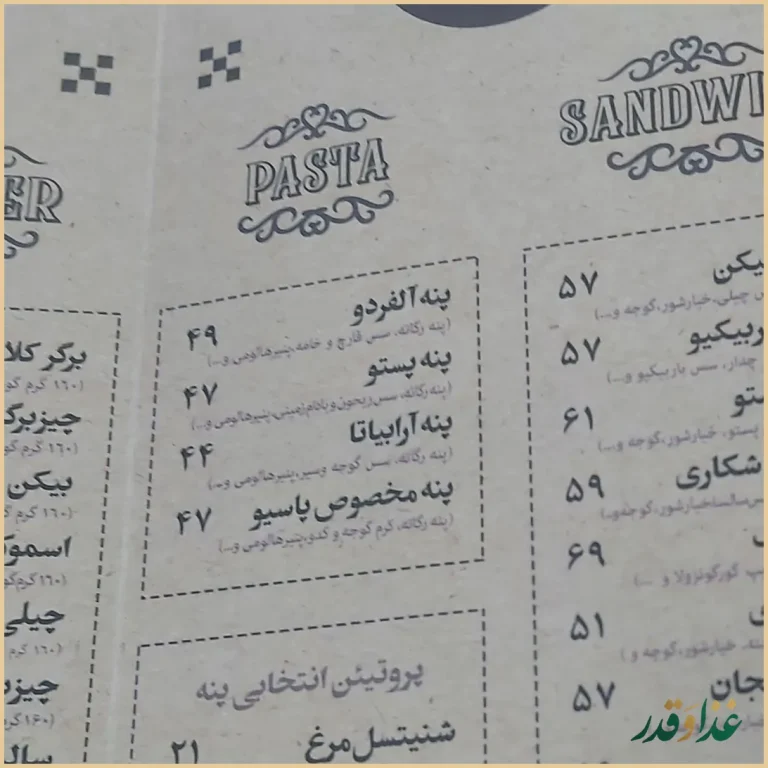 PASTA
پنه آلفردو ۴۹
(پنه رگاته، سس قارچ و خامه، پنیرهالومی و...)
پنه پستو ۴۷
(پنه رگاته، سس ریحون و بادام زمینی، پنیرهالومی و...)
پنه آرابیاتا ۴۴
(پنه رگاته، سس گوجه وسیر، پنیرهالومی و...)
پنه مخصوص پاسیو ۴۷
(پنه رگاته، کرم گوجه و کدو، پنیرهالومی و...)
پروتیئن انتخابی پنه
شنیتسل مرغ ۲۱
SANDWI
یکن ۵۷
چیلی، خیارشور، گوجه و...)
ربیکیو ۵۷
چدار، سس باربیکیو و...)
ستو ۶۱
پستو، خیارشور، گوجه و...)
شکاری ۵۹
س سالسا، خیارشور، گوجه و...)
۶۹
گورگونزولا و ...)
۵۱
خیارشور، گوجه و )
جان ۵۷
ER
برگر کلا
(۱۶۰ گرم گو
چیزبرگ
(۱۶۰ گرم گو
بیکن
(۱۶۰ گرم گ
اسموک
(۱۶۰ گرم گو
چیلی
(۱۶۰ گرم
چیزب
(۱۶۰ گر
سال
غذا و قدر